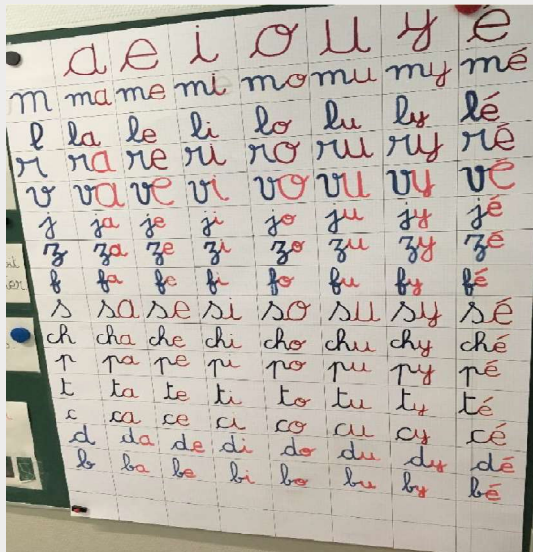 a e i o u y é
m ma me mi mo mu my mé
l la le li lo lu ly lé
r ra re ri ro ru ry ré
v va ve vi vo vu vy vé
j ja je ji jo ju jy jé
z za ze zi zo zu zy zé
f fa fe fi fo fu fy fé
s sa se si so su sy sé
ch cha che chi cho chu chy ché
p pa pe pi po pu py pé
t ta te ti to tu ty té
c ca ce ci co cu cy cé
d da de di do du dy dé
b ba be bi bo bu by bé